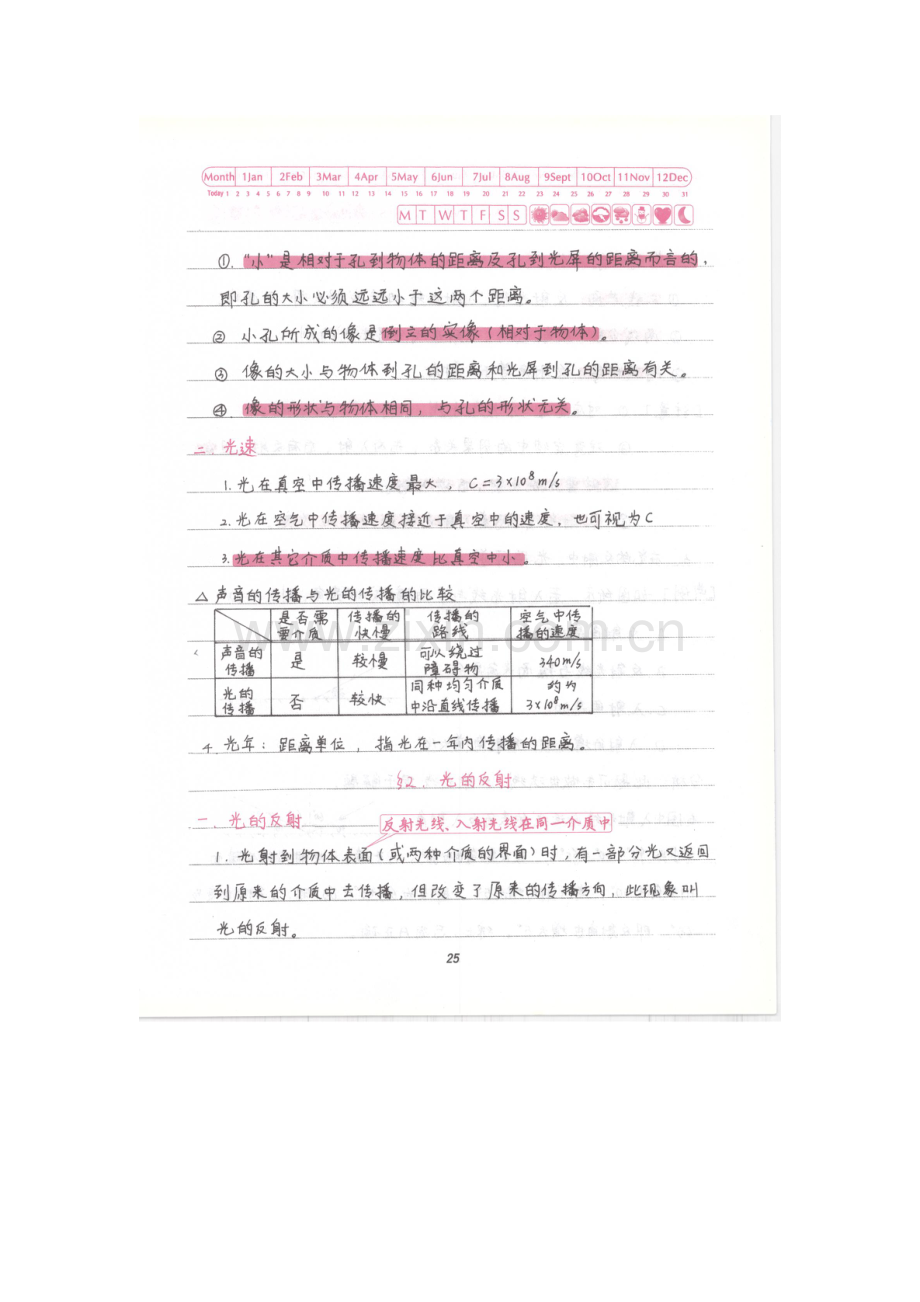 Month 1Jan 2Feb 3Mar 4Apr 5May 6Jun 7Jul 8Aug 9Sept 10Oct 11Nov 12Dec
Today 1 2 3 4 5 6 7 8 9 10 11 12 13 14 15 16 17 18 19 20 21 22 23 24 25 26 27 28 29 30 31
M T W T F S S
①. "小"是相对于孔到物体的距离及孔到光屏的距离而言的，
即孔的大小必须远远小于这两个距离。
② 小孔所成的像是倒立的实像(相对于物体)。
③ 像的大小与物体到孔的距离和光屏到孔的距离有关。
④. 像的形状与物体相同，与孔的形状无关。
二. 光速
1. 光在真空中传播速度最大，C=3×10⁸m/s
2. 光在空气中传播速度接近于真空中的速度，也可视为C
3. 光在其它介质中传播速度比真空中小。
△ 声音的传播与光的传播的比较
是否需要介质 传播的快慢 传播的路线 空气中传播的速度
声音的传播 是 较慢 可以绕过障碍物 340m/s
光的传播 否 较快 同种均匀介质中沿直线传播 约为3×10⁸m/s
www.zixin.com.cn
4. 光年：距离单位，指光在一年内传播的距离。
§2. 光的反射
一. 光的反射 反射光线、入射光线在同一介质中
1. 光射到物体表面(或两种介质的界面)时，有一部分光又返回
到原来的介质中去传播，但改变了原来的传播方向，此现象叫
光的反射。
25